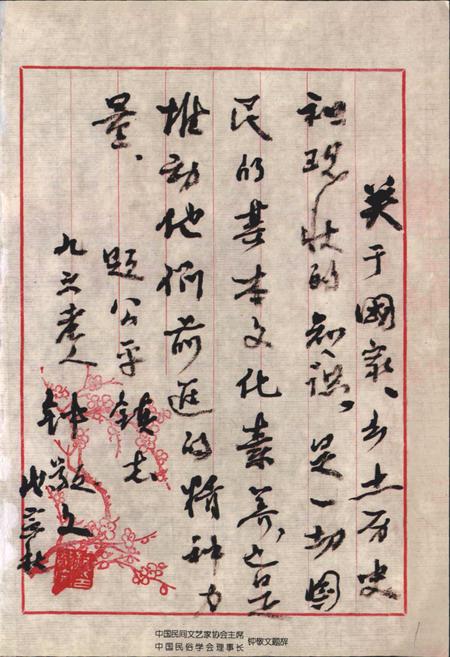 关于國家、乡土历史
和现状的知识，是一切国
民的基本文化素养，也是
推动他们前进的精神力
量、
题公平镇志
九六老人 钟敬文
戊寅秋
中国民间文艺家协会主席
中国民俗学会理事长 钟敬文题辞